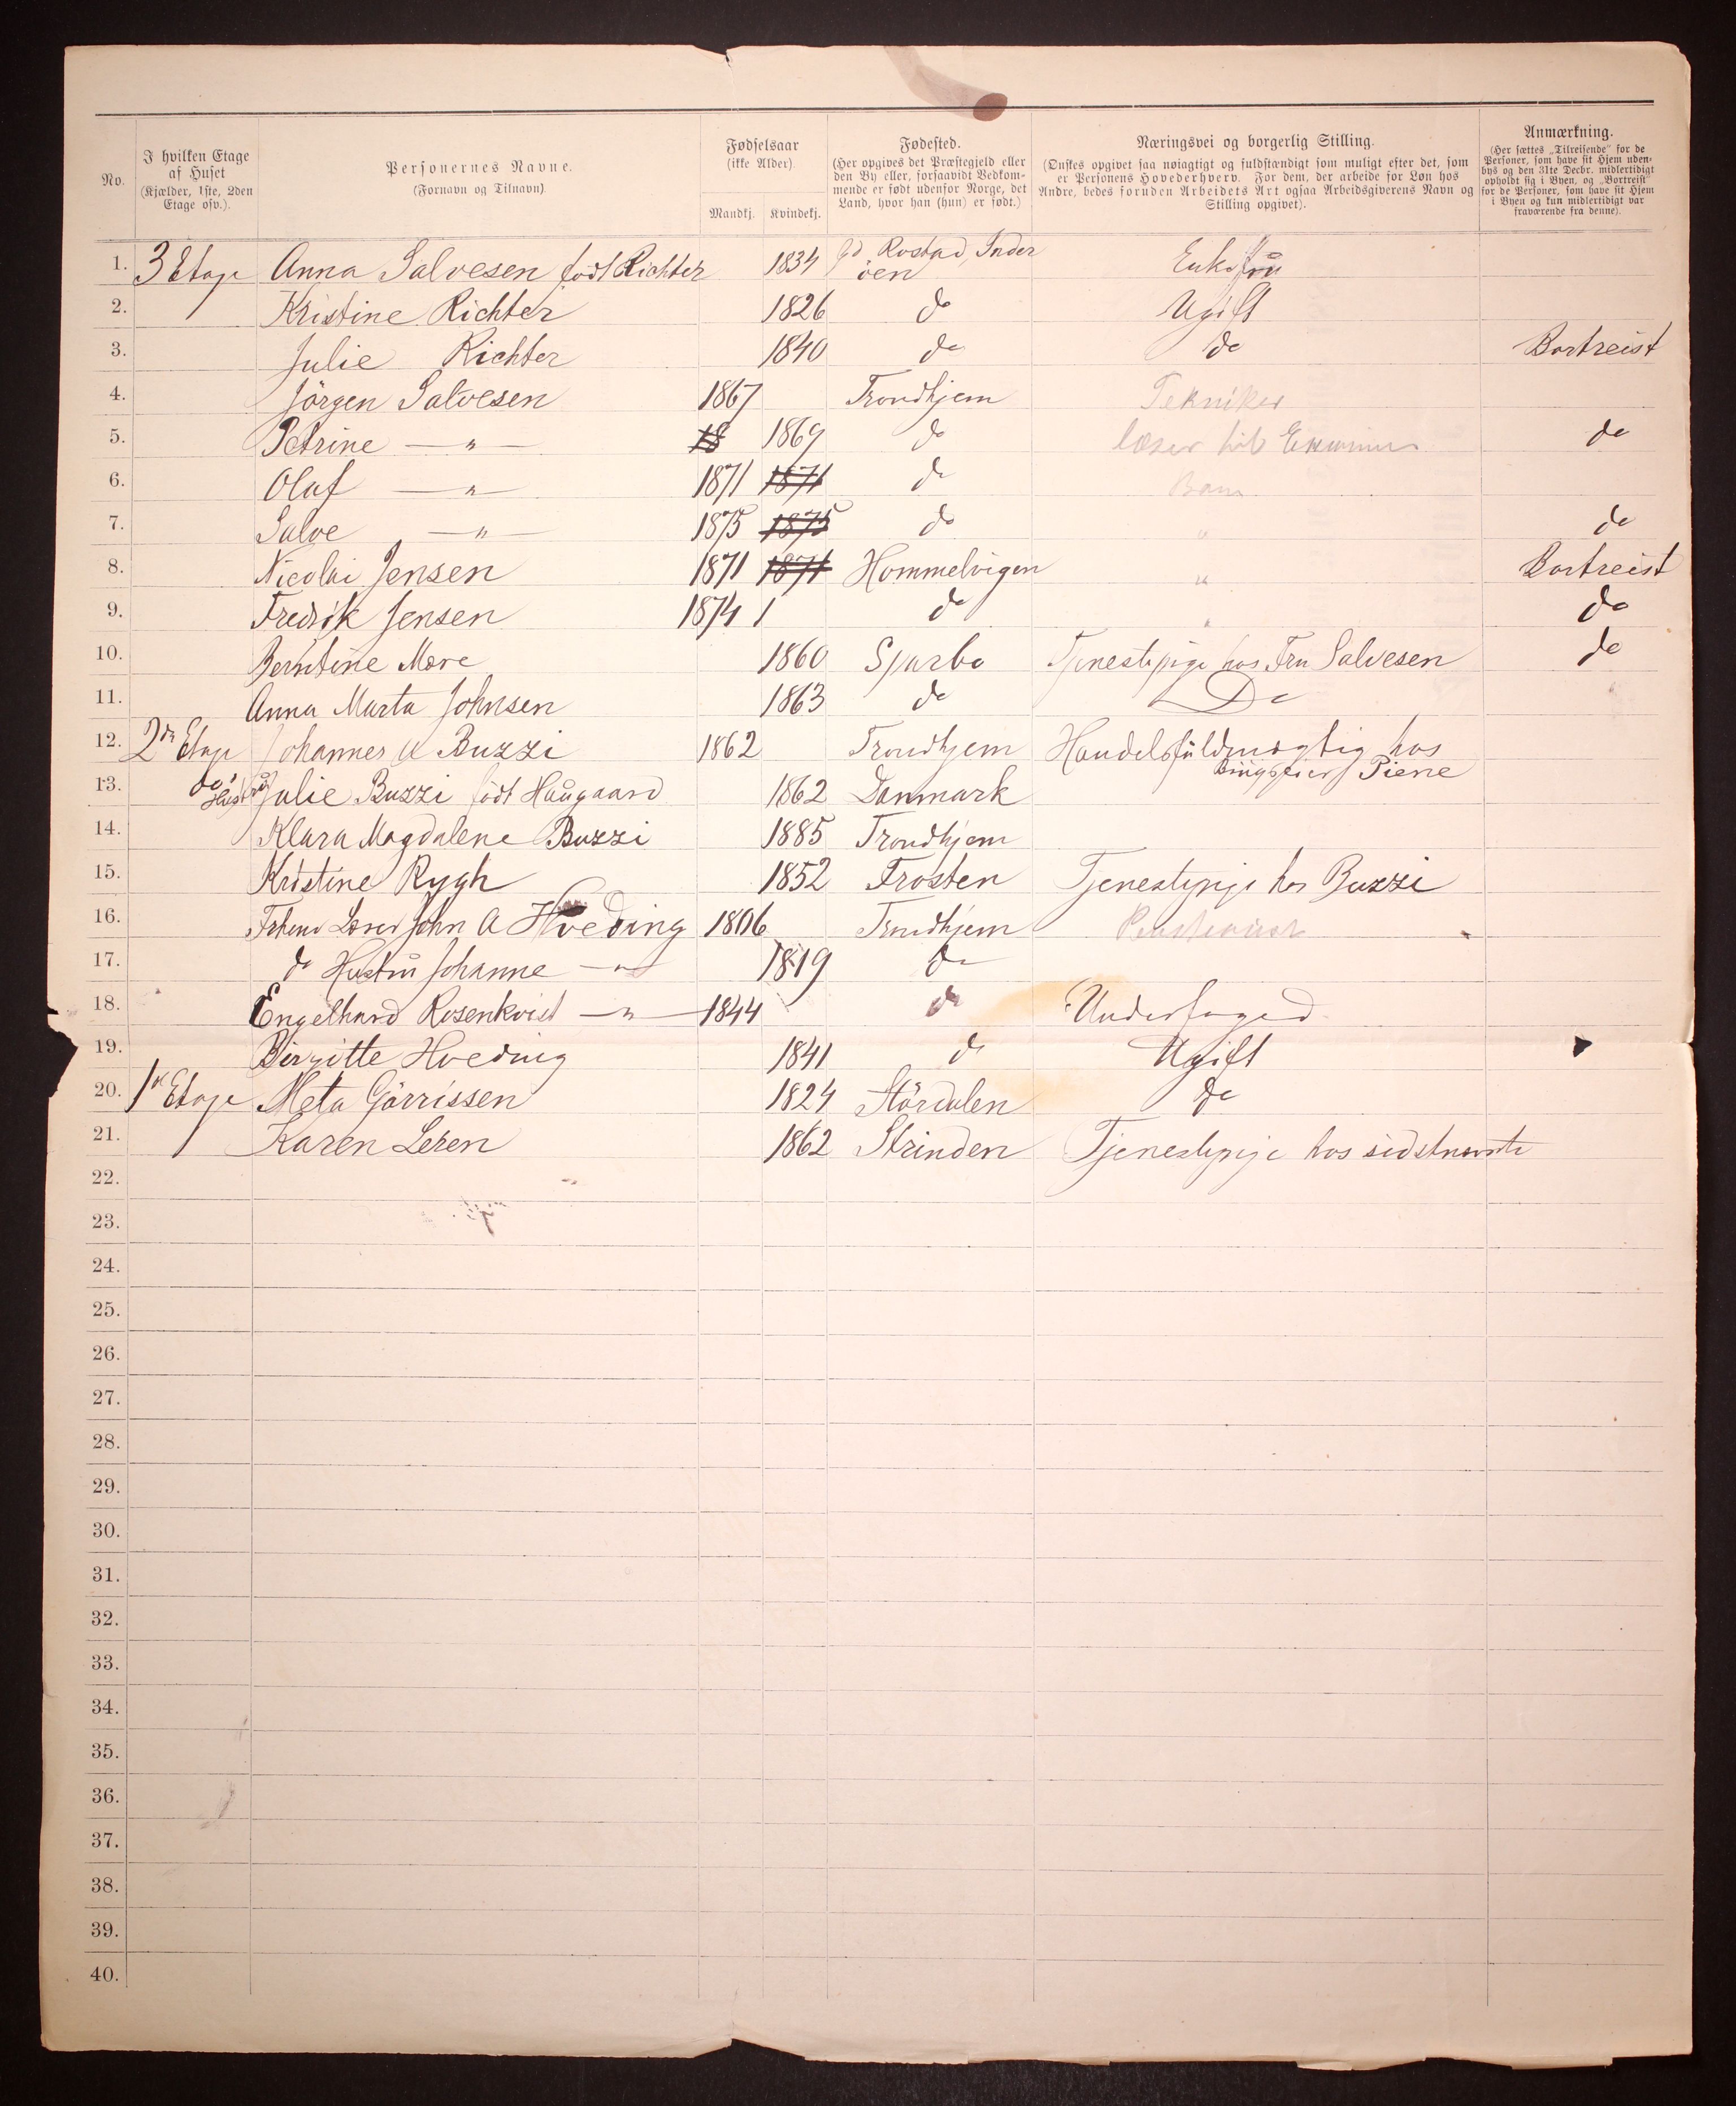 No.
I hvilken Etage
af Huset
(Kjælder, 1ste, 2den
Etage osv.).
Personernes Navne.
(Fornavn og Tilnavn)
Fødselsaar
(ikke Alder)
Mandkj. Kvindekj.
Fødested.
(Her opgives det Præstegjeld eller
den By eller, forsaavidt Vedkom-
mende er født udenfor Norge, det
Land, hvor han (hun) er født.)
Næringsvei og borgerlig Stilling.
(Ønskes opgivet saa nøiagtigt og fuldstændigt som muligt efter det, som
er Personens Hovederhverv. For dem, der arbeide for Løn hos
Andre, bedes foruden Arbeidets Art ogsaa Arbeidsgiverens Navn og
Stilling opgivet).
Anmærkning.
(Her sættes „Tilreisende" for de
Personer, som have sit Hjem uden-
bys og den 31te Decbr. midlertidigt
opholdt sig i Byen, og „Bortreist"
for de Personer, som have sit Hjem
i Byen og kun midlertidigt var
fraværende fra denne).
1. 3 Etage Anna Salvesen født Richter 1834 Rostad, Inder
öen Enkefrü
2. Kristine Richter 1826 do Ugift
3. Julie Richter 1840 do do Bortreist
4. Jörgen Salvesen 1867 Trondhjem Tekniker
5. Petrine — „ — 18 1869 do læser til Examen do
6. Olaf — „ — 1871 1871 do Barn
7. Salve — „ — 1875 1875 do „ do
8. Nicolai Jensen 1871 1871 Hommelvigen „ Bortreist
9. Fredrik Jensen 1874 do „ do
10. Berntine Mære 1860 Sparbo Tjenestepige hos Fru Salvesen do
11. Anna Marta Johnsen 1863 do Do
12. 2den Etage Johannes Buzzi 1862 Trondhjem Handelsfüldmægtig hos
Piene
13. do Hustrü Julie Buzzi født Haügaard 1862 Danmark
14. Klara Magdalene Buzzi 1885 Trondhjem
15. Kristine Rygh 1852 Frosten Tjenestepige hos Buzzi
16. John A Hveding 1806 Trondhjem Pensionist
17. do Hustrü Johanne — „ — 1819 do
18. Engelhard Rosenkvist — „ — 1844 do Underfoged
19. Birgitte Hveding 1841 do Ugift
20. 1ste Etage Meta Görrissen 1824 Stördalen do
21. Karen Leren 1862 Strinden Tjenestepige hos sidstnævnte
22.
23.
24.
25.
26.
27.
28.
29.
30.
31.
32.
33.
34.
35.
36.
37.
38.
39.
40.